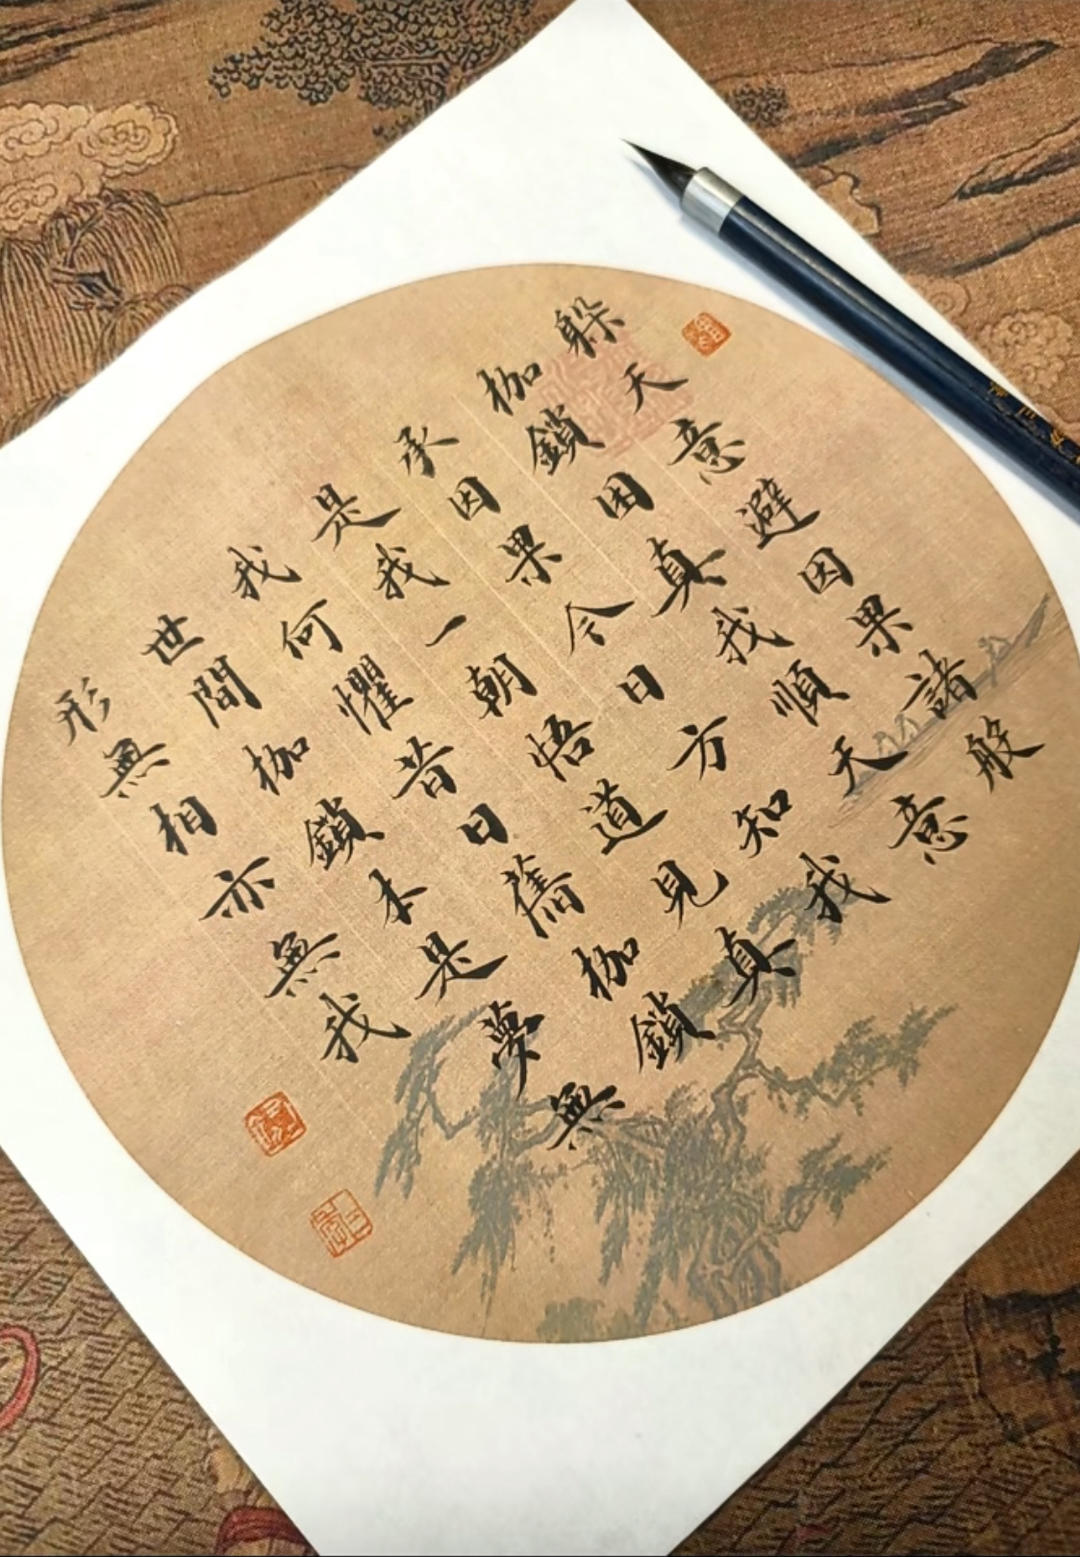 躲天意避因果諸般
枷鎖困真我順天意
承因果今日方知我
是我一朝悟道見真
我何懼昔日舊枷鎖
世間枷鎖本是夢無
形無相亦無我